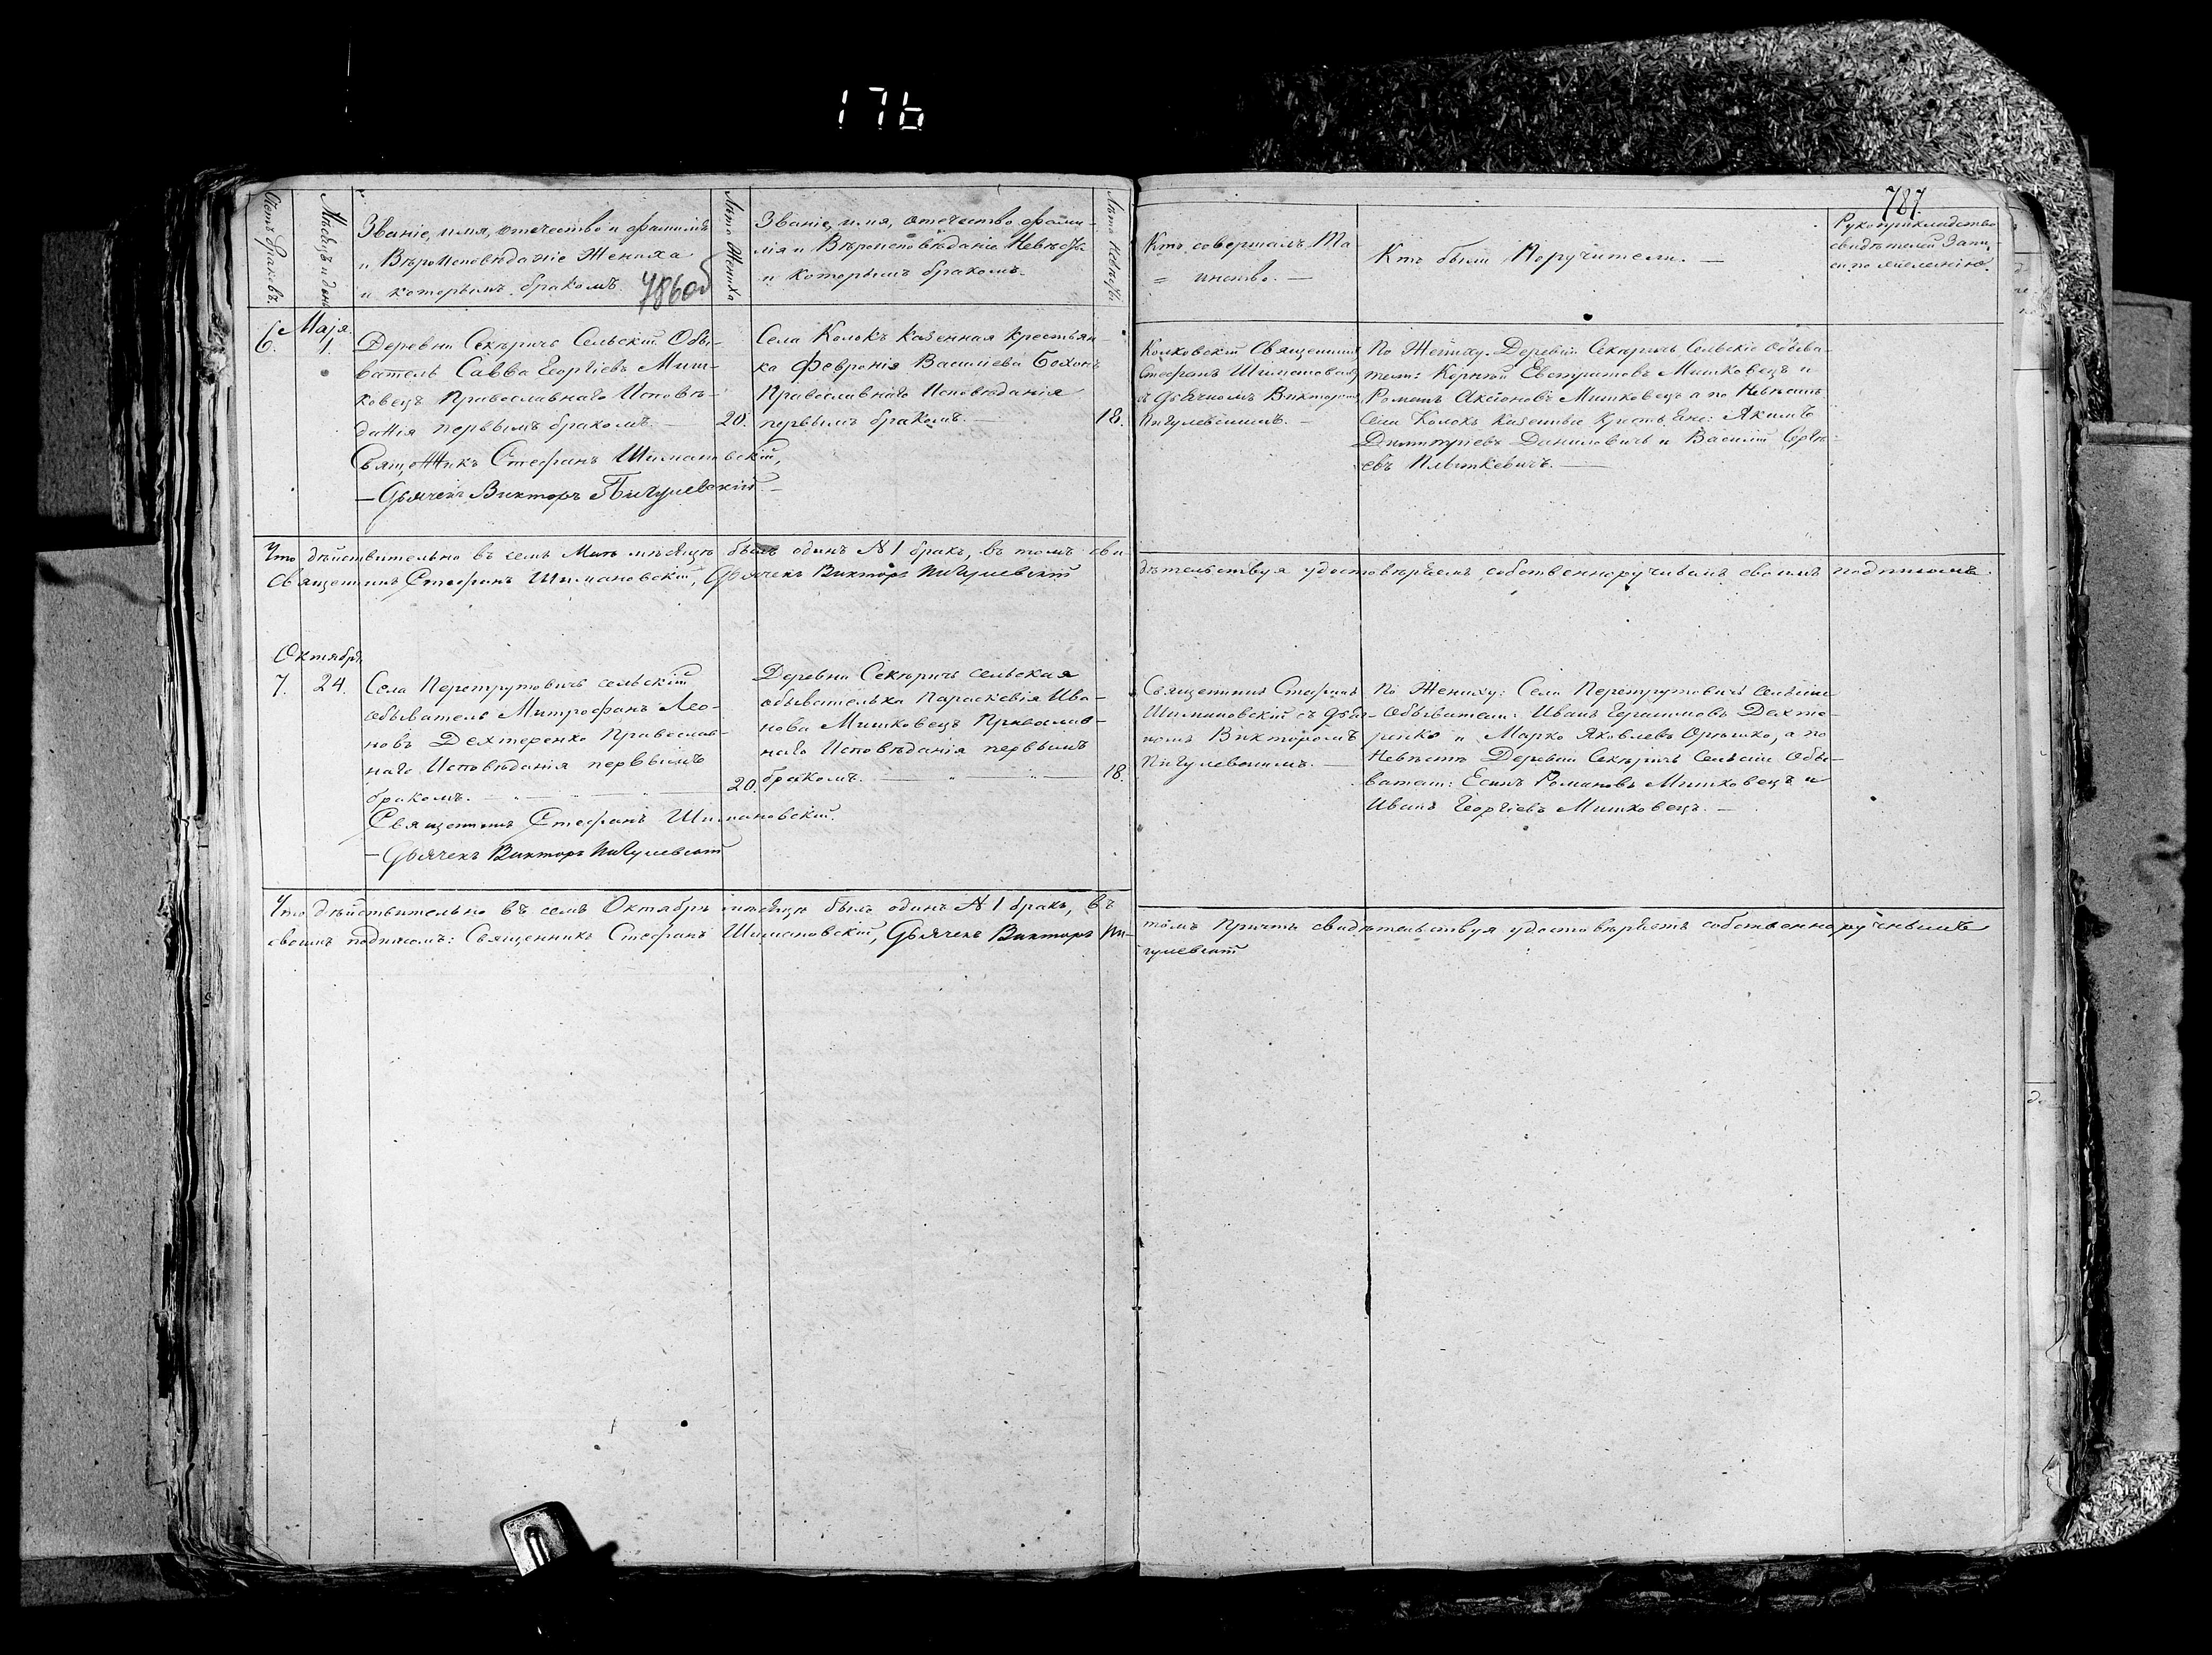 176
787.
Счетъ Браковъ.
Мѣсяцъ и день
Званіе, имя, отечество и фамилія
и Вѣроисповѣданіе Жениха
и которымъ бракомъ.
786об
Лѣта Жениха
Званіе, имя, отечество, фами-
лія и Вѣроисповѣданіе Невѣсты
и которымъ бракомъ.
Лѣта Невѣсты
Кто совершалъ Та
= инство. —
Кто были Поручители. —
Рукоприкладство
свидѣтелей Запи
си по желанію.
6. Маія
1.
Деревни Секѣричъ Сельскій Обы-
ватель Савва Георгіевъ Миш-
ковецъ Православнаго Исповѣ-
данія первымъ бракомъ. —
20.
Священникъ Стефанъ Шимановскій,
— Дьячекъ Викторъ Пигулевскій. —
Села Колокъ Казенная крестьян-
ка Февронія Василіева Бохон
Православнаго Исповѣданія
первымъ бракомъ. —
18.
Колковскій Священникъ
Стефанъ Шимановскій
съ Дьячкомъ Викторомъ
Пигулевскимъ. —
По Жениху: Деревни Секѣричъ Сельскіе Обыва-
тели: Корнѣй Евстратовъ Мишковецъ и
Романъ Аксіоновъ Мишковецъ а по Невѣстѣ
Села Колокъ Казенные Крестьяне: Якимъ
Димитріевъ Даниловичъ и Василій Сергѣ-
евъ Плыткевичъ. —
Что дѣйствительно въ семъ Маѣ мѣсяцѣ былъ одинъ № 1 бракъ, въ томъ сви-
дѣтельствуя удостовѣряемъ собственноручнымъ своимъ подписомъ
Священникъ Стефанъ Шимановскій, Дьячекъ Викторъ Пигулевскій
Октября
7. 24.
Села Перетрутовичъ сельскій
обыватель Митрофанъ Лео-
новъ Дехтеренко Православ-
наго Исповѣданія первымъ
бракомъ. —
20.
Священникъ Стефанъ Шимановскій.
— Дьячекъ Викторъ Пигулевскій
Деревни Секѣричъ сельская
обывателька Параскевія Ива-
нова Мишковецъ Православ-
наго Исповѣданія первымъ
бракомъ. —
18.
Священникъ Стефанъ
Шимановскій съ Дьяч-
комъ Викторомъ
Пигулевскимъ. —
По Жениху: Села Перетрутовичъ Сельскіе
Обыватели: Иванъ Герасимовъ Дехте-
ренко и Марко Яковлевъ Орѣшко, а по
Невѣстѣ Деревни Секѣричъ Сельскіе Обы-
ватели: Есипъ Романовъ Мишковецъ и
Иванъ Георгіевъ Мишковецъ. —
Что дѣйствительно въ семъ Октябрѣ мѣсяцѣ былъ одинъ № 1 бракъ, въ
томъ Причтъ свидѣтельствуя удостовѣряетъ собственноручнымъ
своимъ подписомъ: Священникъ Стефанъ Шимановскій, Дьячекъ Викторъ Пи-
гулевскій